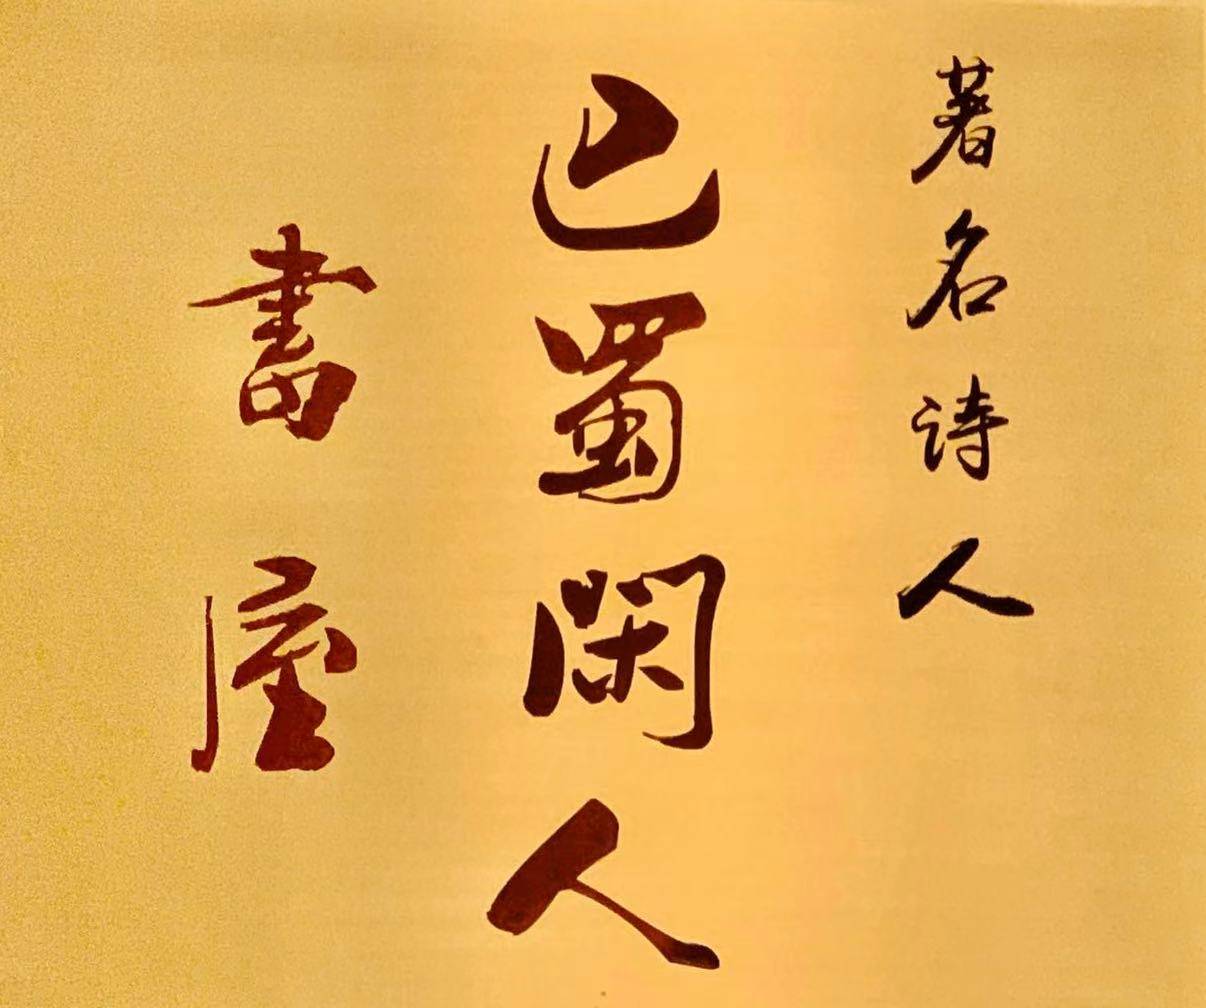 著名诗人
巴蜀閑人
書屋